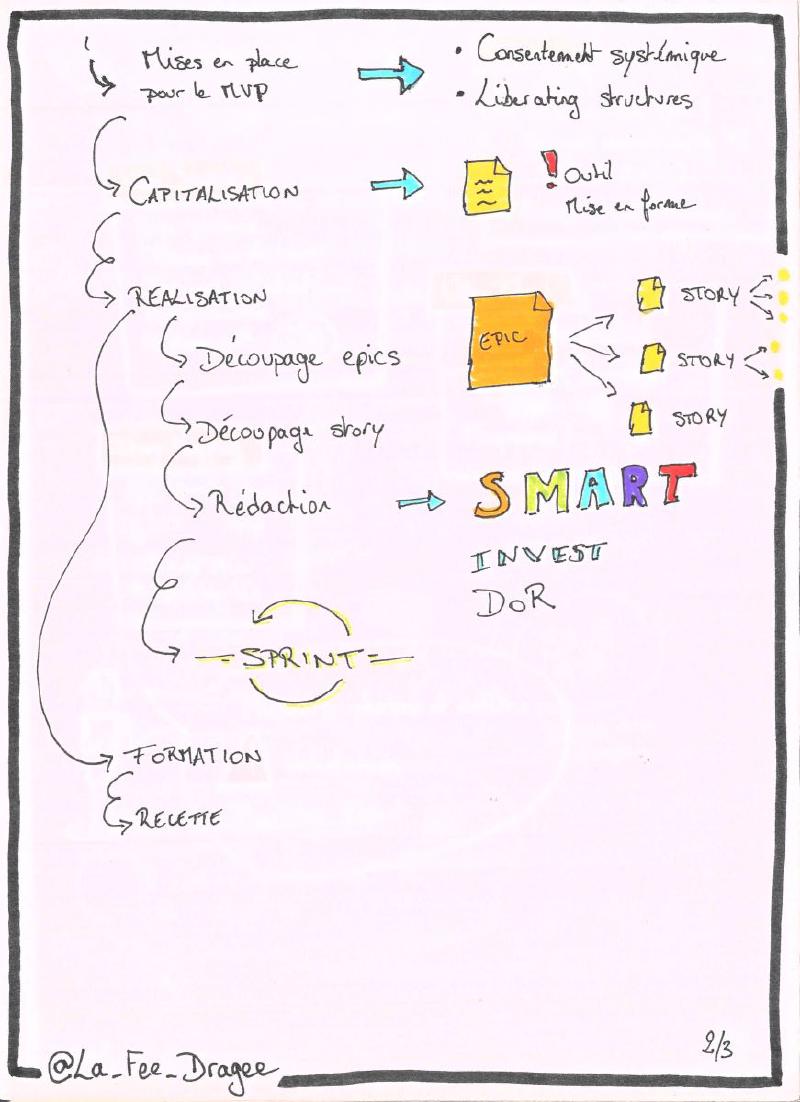 Mises en place
pour le MVP
• Consentement systémique
• Liberating structures
CAPITALISATION
! Outil
Mise en forme
RÉALISATION
Découpage epics
Découpage story
Rédaction
EPIC
STORY
STORY
STORY
SMART
INVEST
DoR
= SPRINT =
FORMATION
RECETTE
2/3
@La_Fee_Dragee